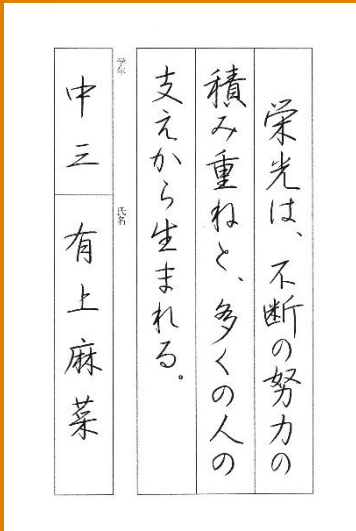 栄光は、不断の努力の
積み重ねと、多くの人の
支えから生まれる。
学年
中三
氏名
有上麻菜